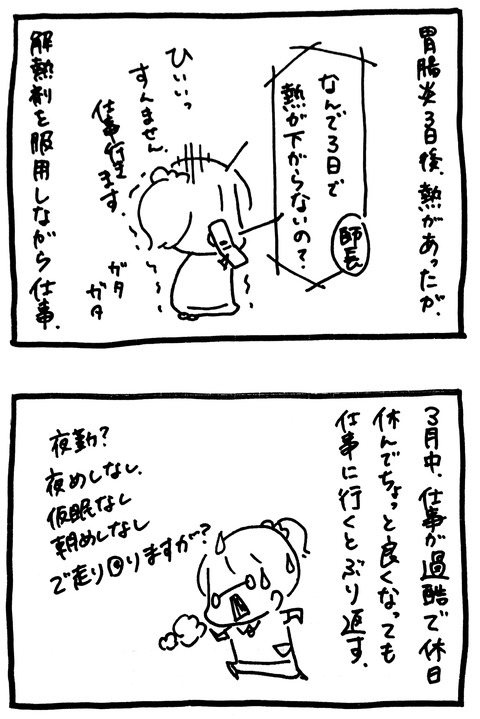 胃腸炎3日後、熱があったが、
師長
なんで3日で
熱が下がらないの?
ひぃぃっ
すんません、
仕事行きます。
ガタ
ガタ
解熱剤を服用しながら仕事。
3月中、仕事が過酷で休日
休んでちょっと良くなっても
仕事に行くとぶり返す。
夜勤?
夜めしなし、
仮眠なし
朝めしなし
で走り回りますが?